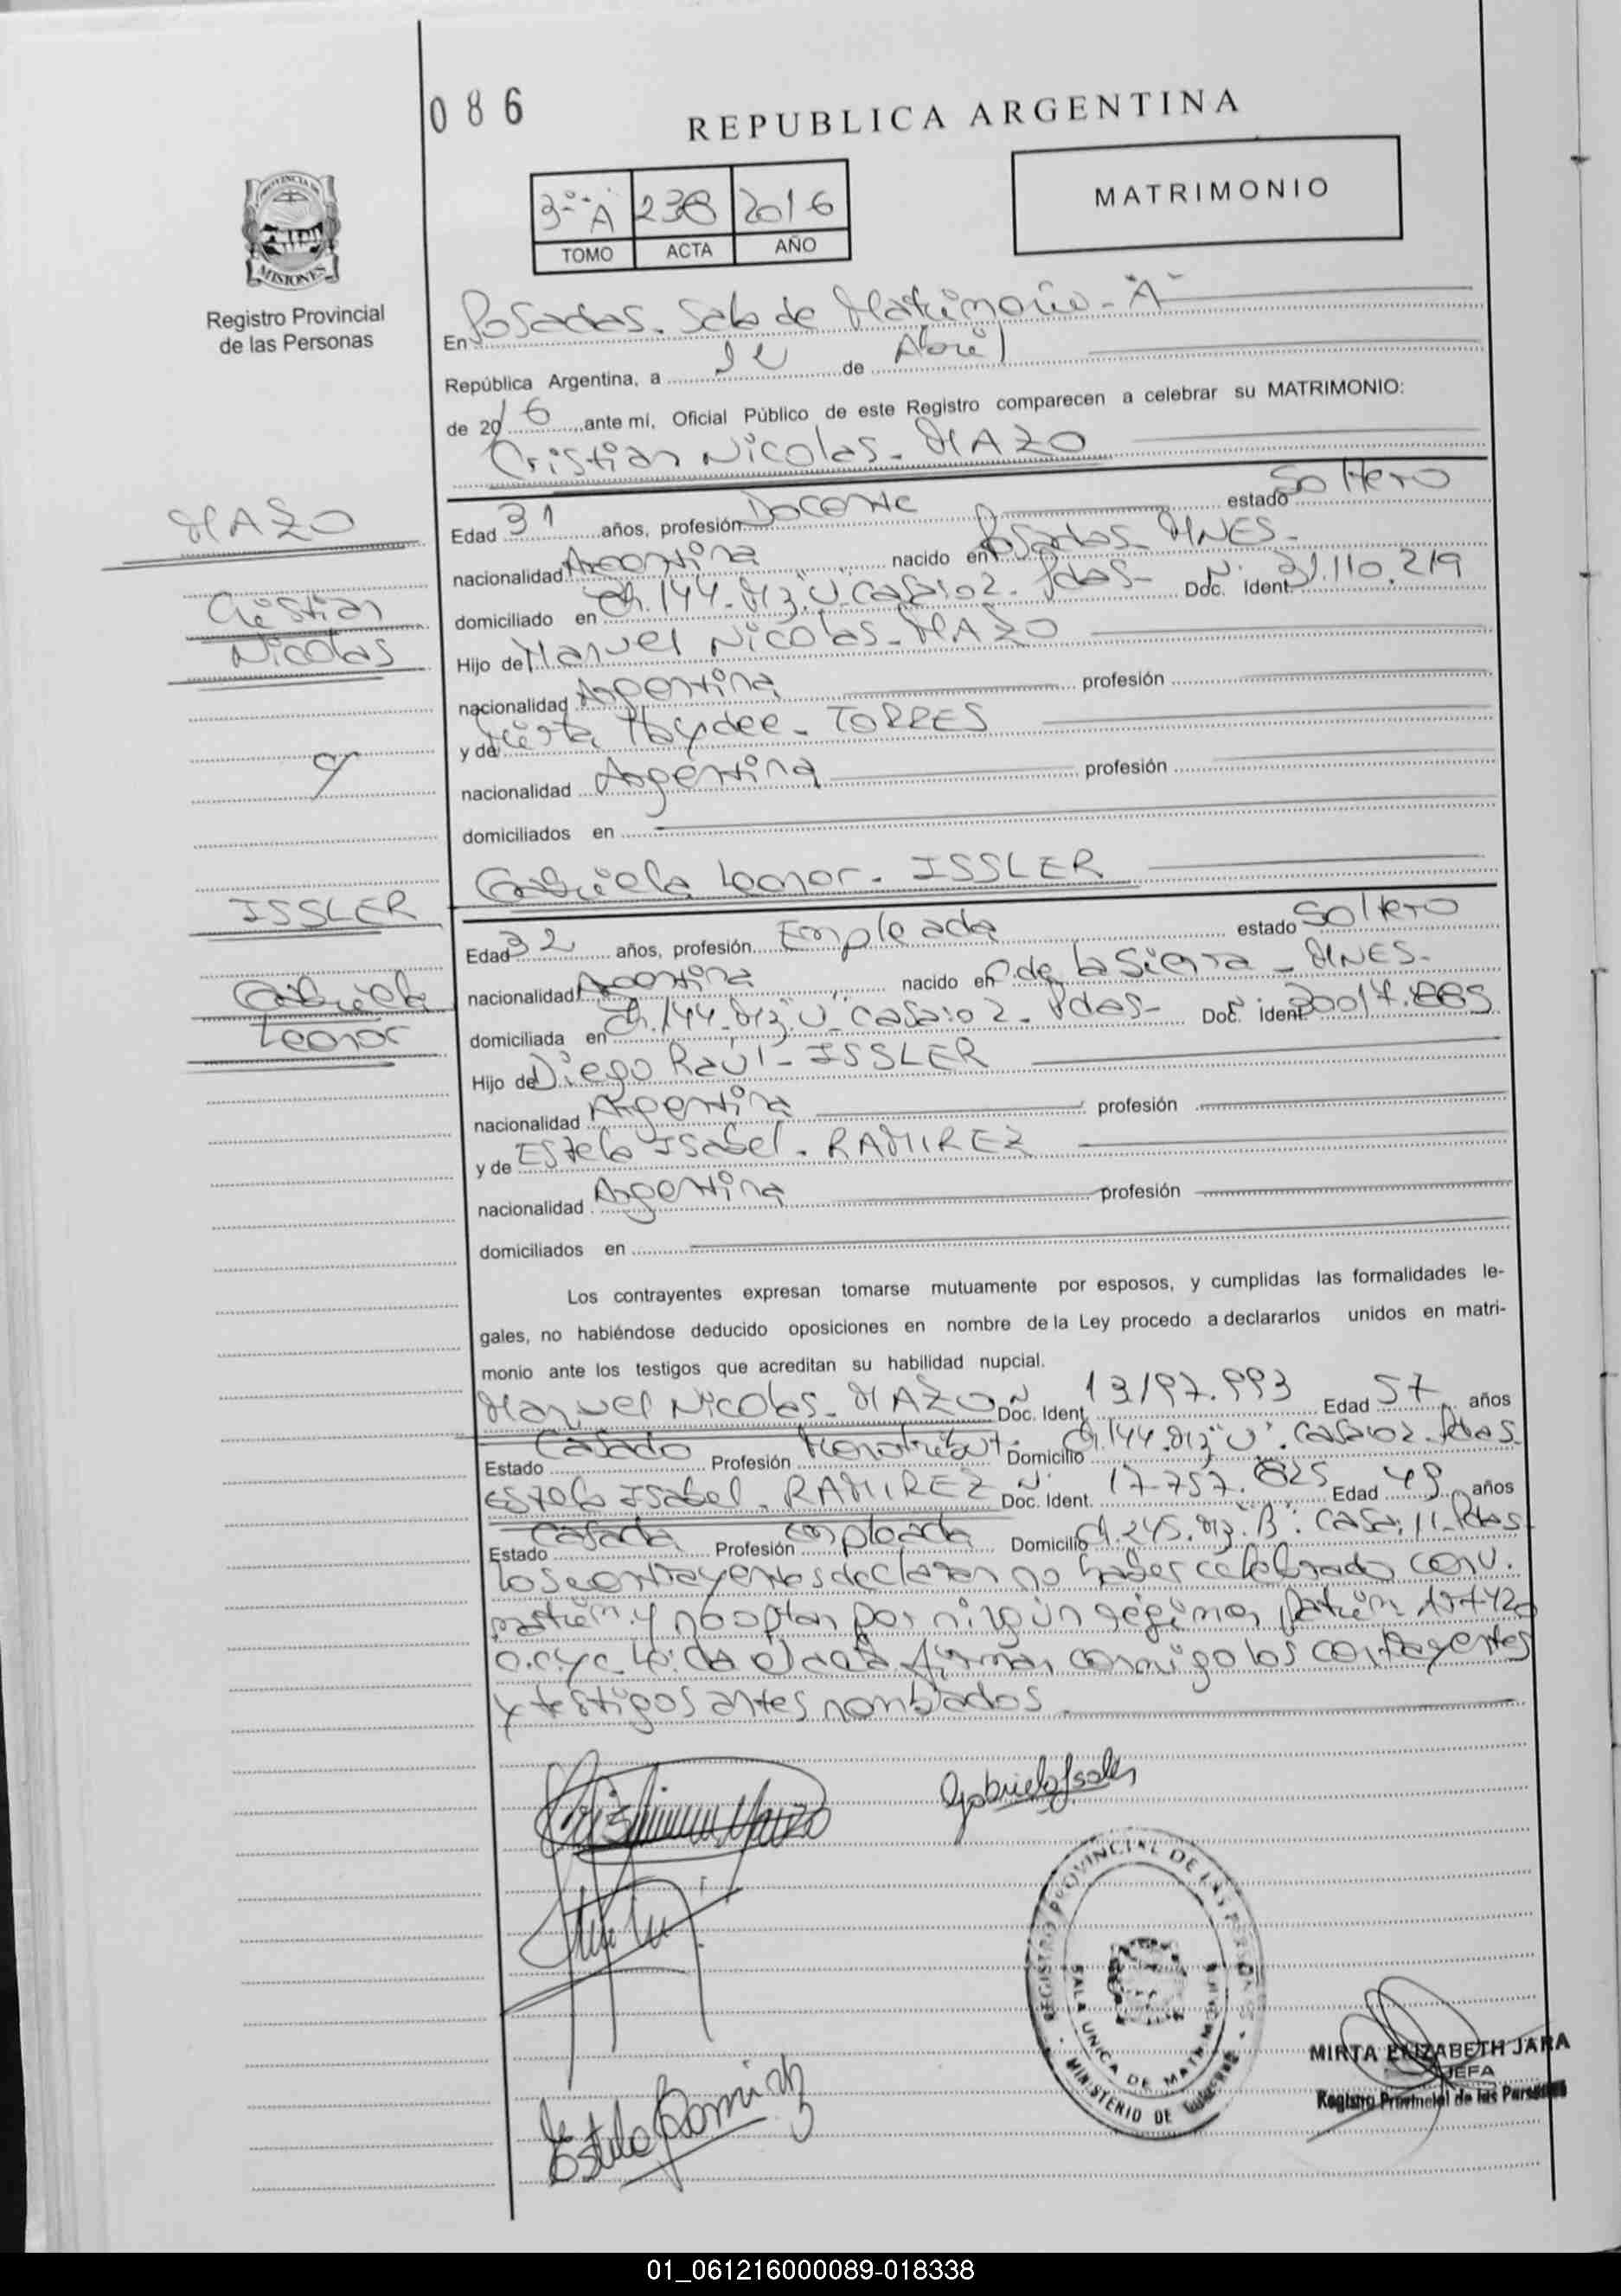 086
REPUBLICA ARGENTINA
PROVINCIA DE
MISIONES
Registro Provincial
de las Personas
3º "A" 238 2016
TOMO ACTA AÑO
MATRIMONIO
En Posadas - Sala de Matrimonio - "A"
República Argentina, a de Abril
de 2016 ante mi, Oficial Público de este Registro comparecen a celebrar su MATRIMONIO:
Cristian Nicolas - MAZO
MAZO
Cristian
Nicolas
Edad 31 años, profesión Docente estado Soltero
nacionalidad Argentina nacido en Posadas - MNES -
domiciliado en Ch. 144 - Mz "U" - casa 102 - Pdas - Doc. Ident. Nº 31.110.219
Hijo de Manuel Nicolas - MAZO
nacionalidad Argentina profesión
y de Mirta Haydee - TORRES
y
nacionalidad Argentina profesión
domiciliados en
Gabriela Leonor - ISSLER
ISSLER
Gabriela
Leonor
Edad 32 años, profesión Empleada estado Soltero
nacionalidad Argentina nacido en C. de la Sierra - MNES -
domiciliada en Ch. 144 - Mz "U" - casa 102 - Pdas - Doc. Ident. Nº
Hijo de Diego Raúl - ISSLER
nacionalidad Argentina profesión
y de Estela Isabel - RAMIREZ
nacionalidad Argentina profesión
domiciliados en
Los contrayentes expresan tomarse mutuamente por esposos, y cumplidas las formalidades le-
gales, no habiéndose deducido oposiciones en nombre de la Ley procedo a declararlos unidos en matri-
monio ante los testigos que acreditan su habilidad nupcial.
Manuel Nicolas - MAZO Doc. Ident. Nº 13197.993 Edad 57 años
Estado Casado Profesión Monotribut. Domicilio Ch. 144 - Mz "U" - casa 102 - Pdas -
Estela Isabel - RAMIREZ Doc. Ident. Nº 17.757.825 Edad 49 años
Estado Casada Profesión Empleada Domicilio Ch. 245 - Mz "B" - casa: 11 - Pdas -
Los contrayentes declaran no haber celebrado conv.
matrim. y no optan por ningún régimen patrim.
Leída el acta firman conmigo los contrayentes
y testigos antes nombrados.
Gabriela Issler
Estela Ramirez
REGISTRO PROVINCIAL DE LAS PERSONAS
SALA UNICA DE MATRIMONIOS
MINISTERIO DE GOBIERNO
MIRTA ELIZABETH JARA
JEFA
Registro Provincial de las Personas
01_061216000089-018338